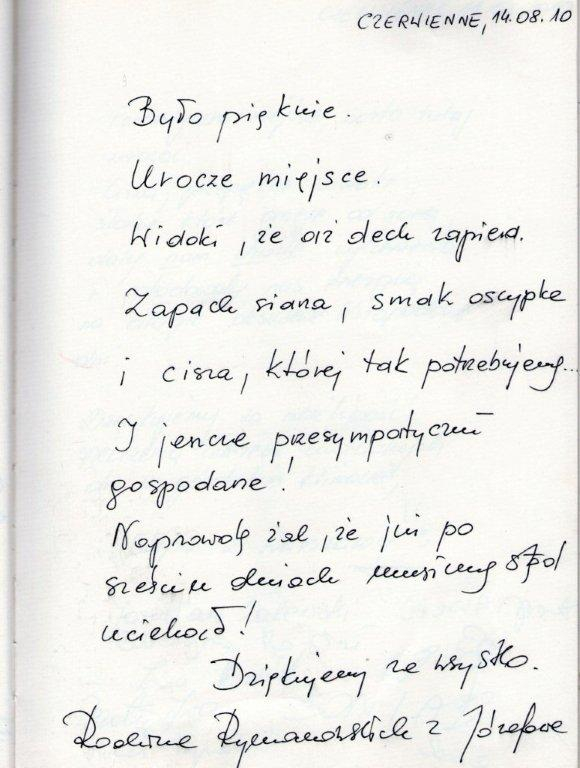 CZERWIENNE, 14.08.10
Było pięknie.
Urocze miejsce.
Widoki, że aż dech zapiera.
Zapach siana, smak oscypka
i cisza, której tak potrzebujemy...
I jeszcze przesympatyczni
gospodarze!
Naprawdę żal, że już po
sześciu dniach musimy stąd
uciekać!
Dziękujemy za wszystko.
Rodzina Rymanowskich z Józefowa